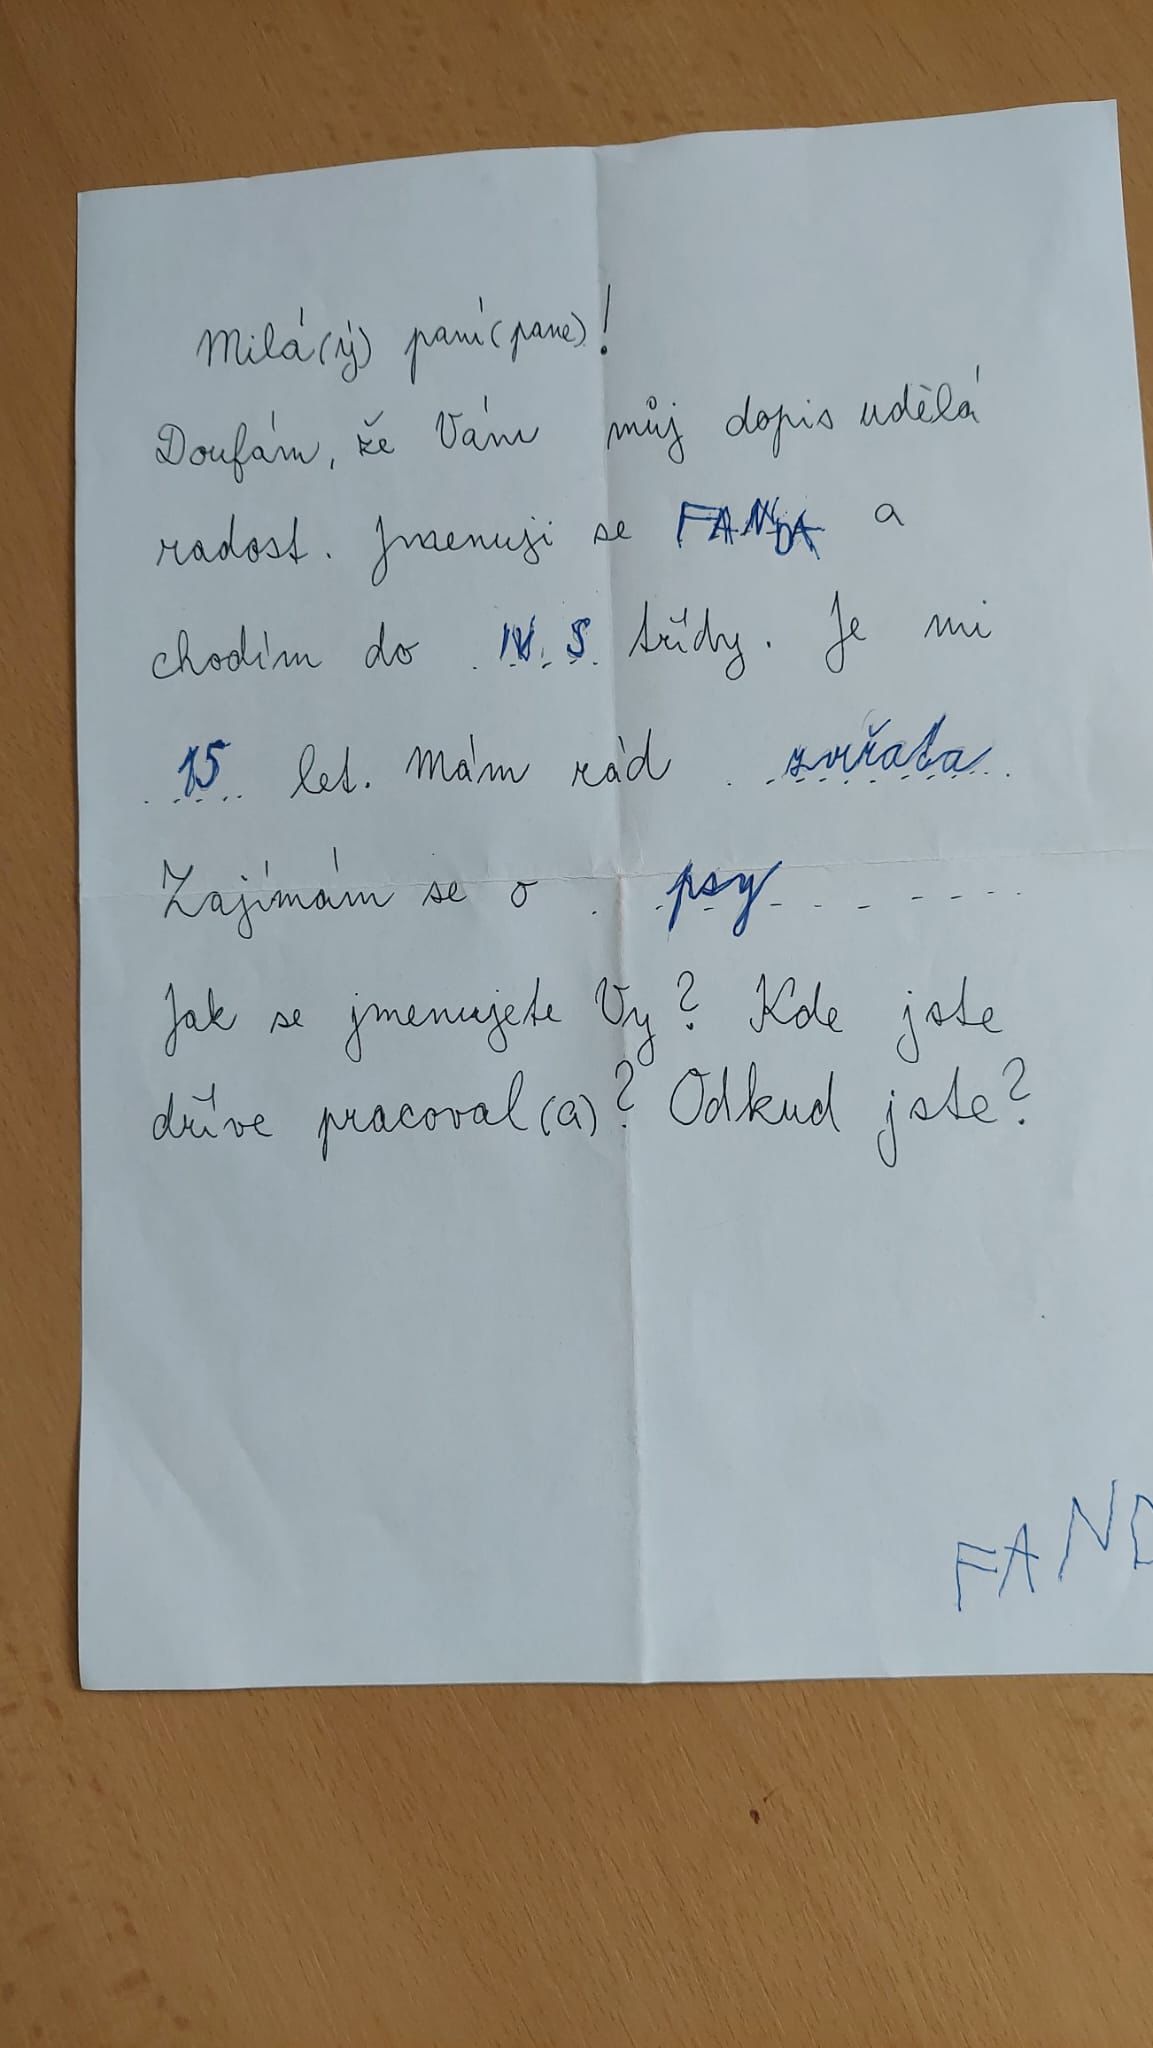 Milá(ý) paní(pane)!
Doufám, že Vám můj dopis udělá
radost. Jmenuji se FANDA a
chodím do IV. S třídy. Je mi
15 let. Mám rád zvířata
Zajímám se o psy
Jak se jmenujete Vy? Kde jste
dříve pracoval(a)? Odkud jste?
FAND